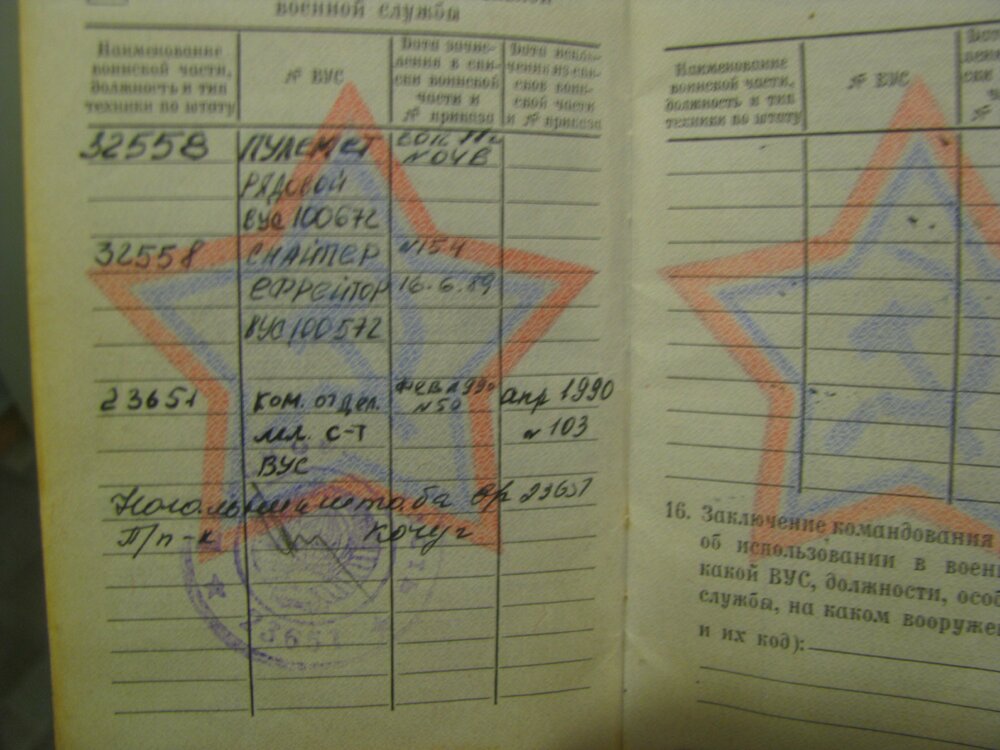 военной службы
Наименование воинской части, должность и тип техники по штату
№ ВУС
Дата зачисления в списки воинской части и № приказа
Дата исключения из списков воинской части и № приказа
32558 ПУЛЕМЕТ
№04В
РЯДОВОЙ
ВУС 100672
32558 СНАЙПЕР №154
ЕФРЕЙТОР 16.6.89
ВУС 100572
23651 ком. отдел. №50 апр 1990
мл. с-т №103
ВУС
Начальник штаба в/ч 23651
П/п-к Кочуг
23651
Наименование
воинской части,
должность и тип
техники по штату
№ ВУС
16. Заключение командования
об использовании в воен
какой ВУС, должности, особ
службы, на каком вооруже
и их код):